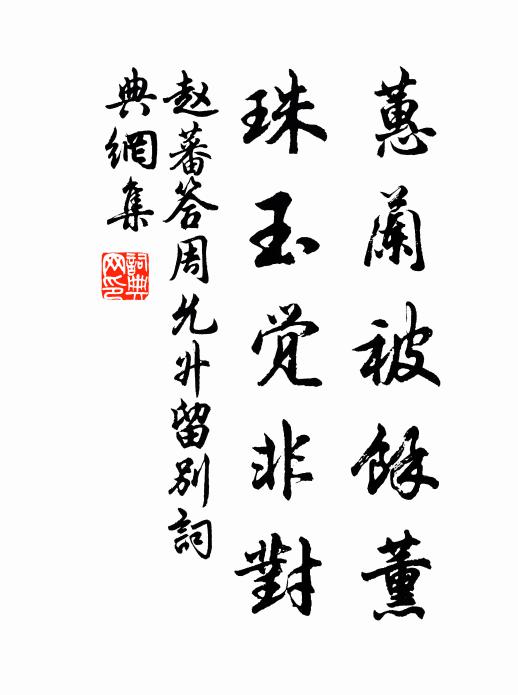 蕙蘭被餘薰
珠玉觉非對
赵蕃答周允升留別詞
典網集
詞典
网印